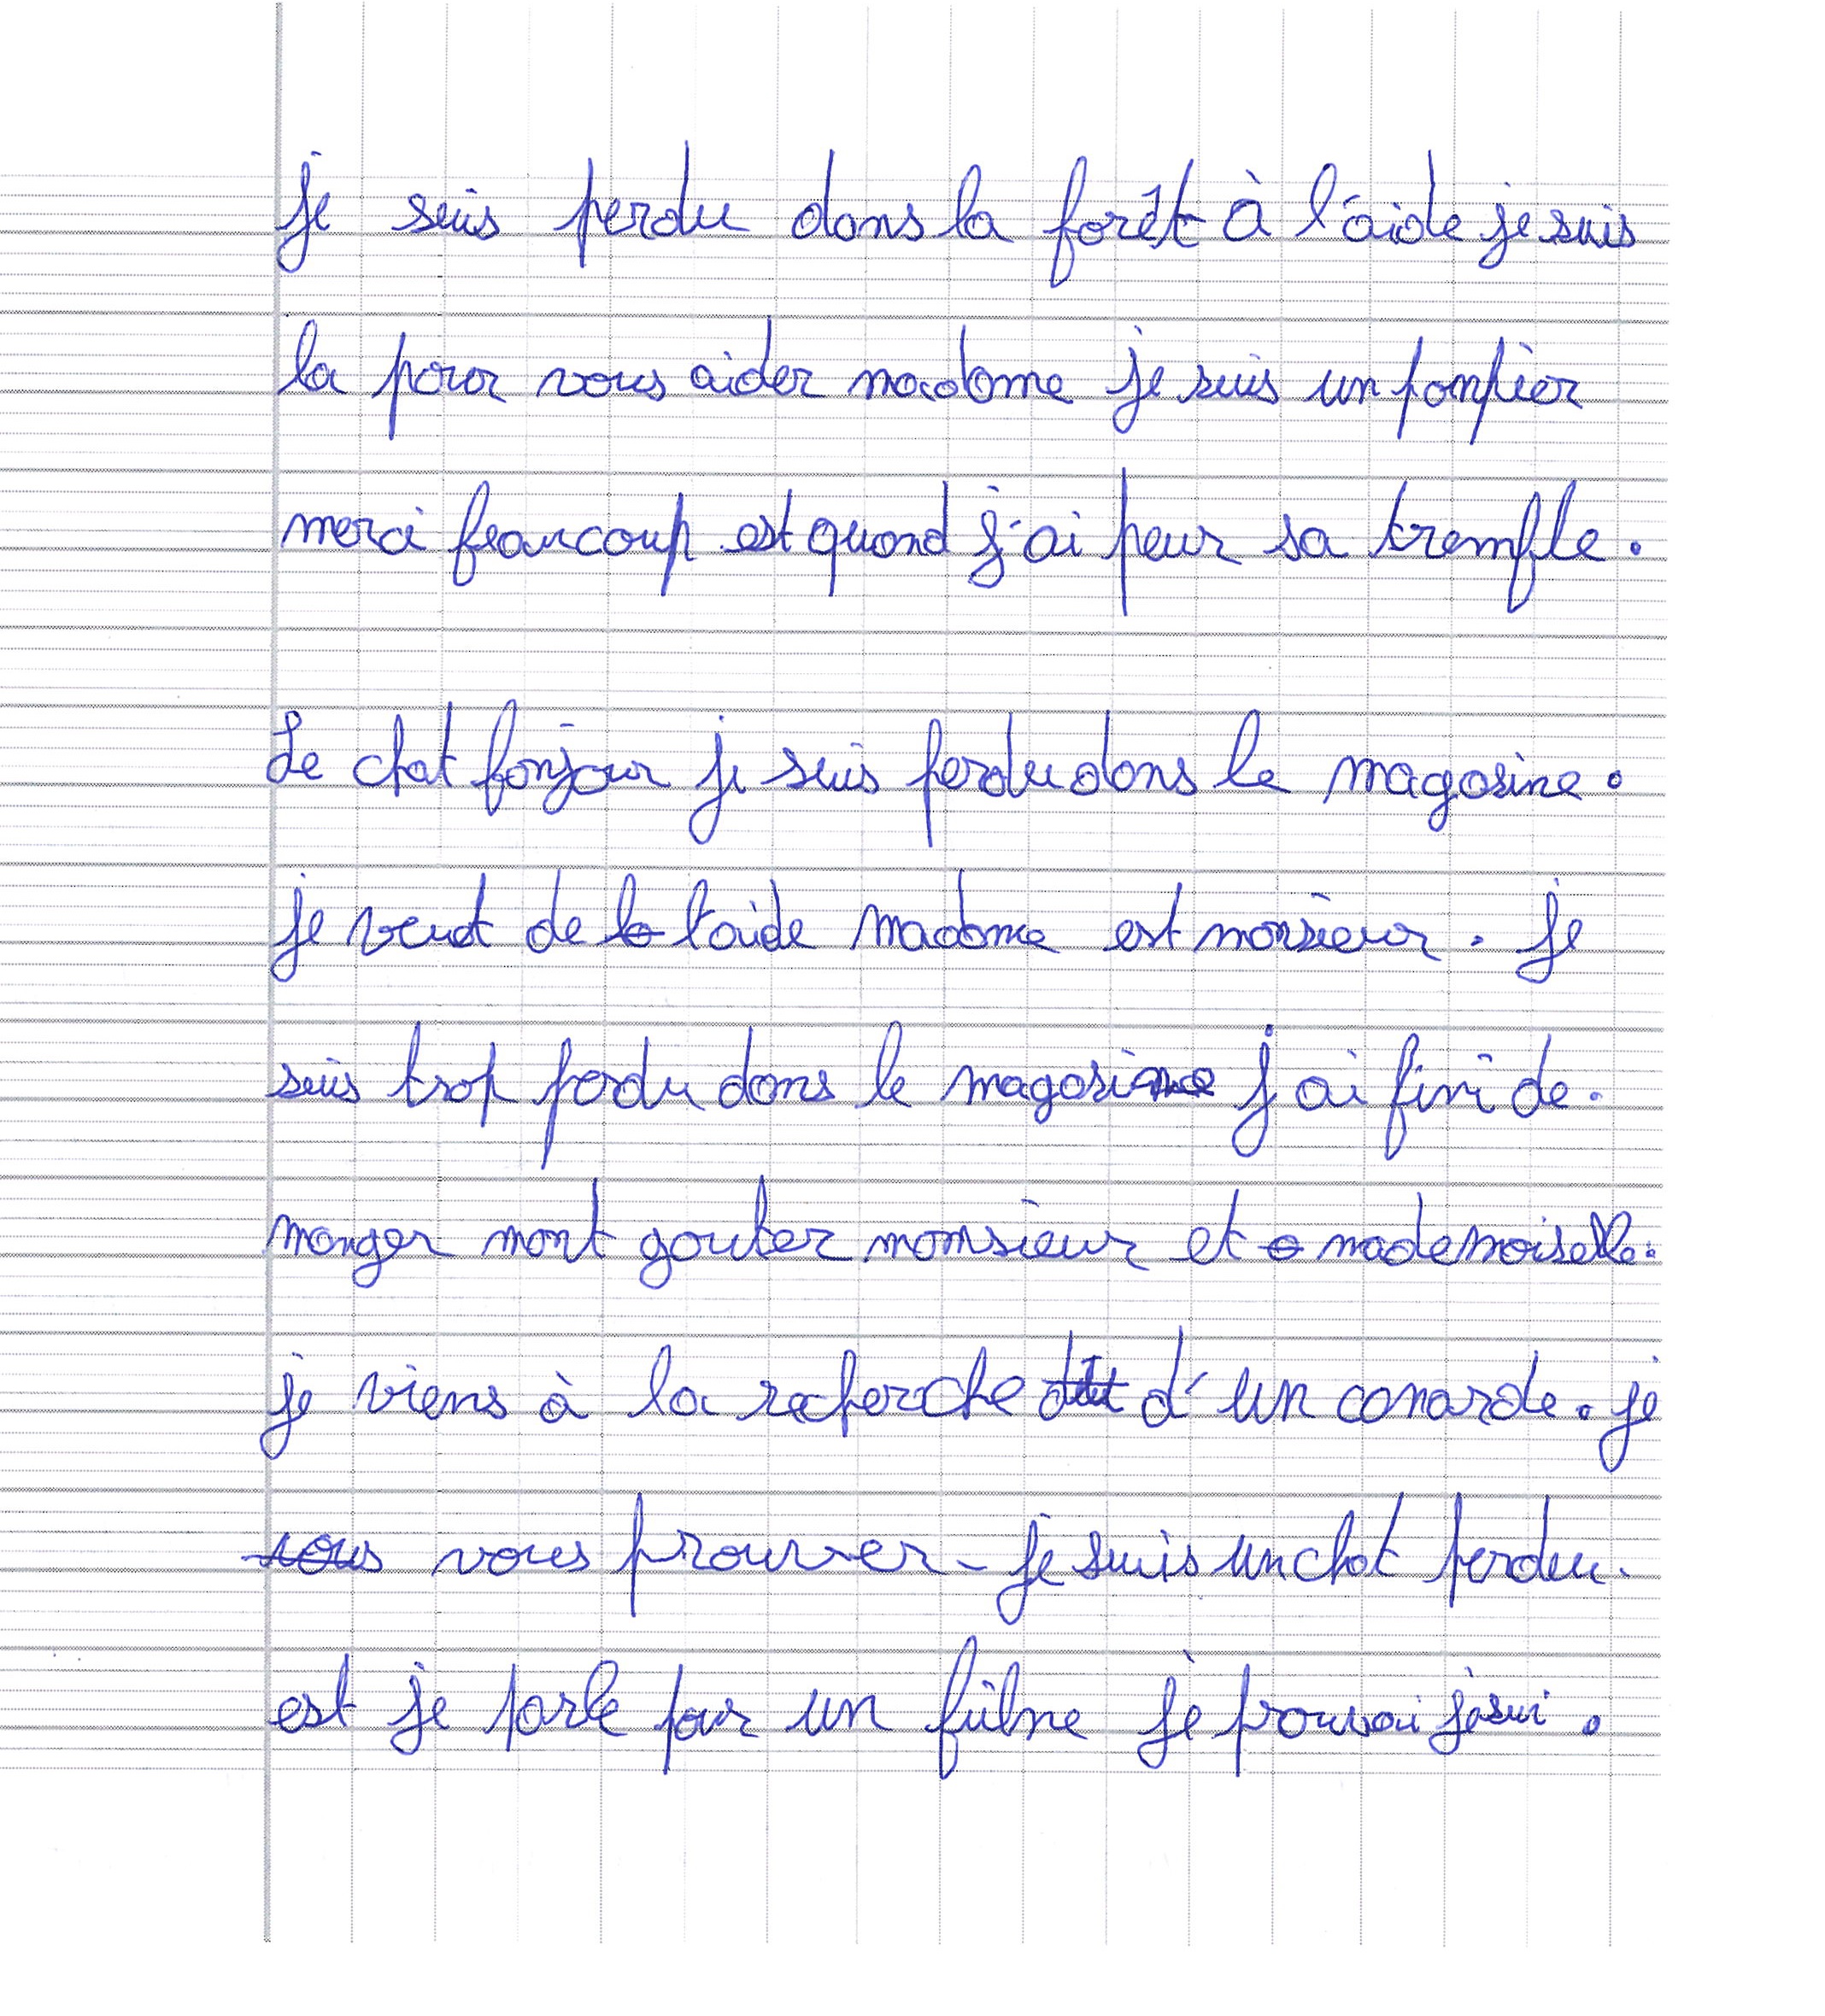 je suis perdu dans la forêt à l'aide je suis
la pour vous aider madame je suis un pompier
merci beaucoup est quand j'ai peur sa tremble.
Le chat bonjour je suis perdu dans le magasine.
je veut de l'aide madame est monsieur. je
suis trop perdu dans le magasine j'ai fini de.
manger mont gouter monsieur et mademoiselle.
je viens à la recherche d'un canarde. je
vous prouver - je suis un chat perdu.
est je parle pour un filme je pouvai je sui.